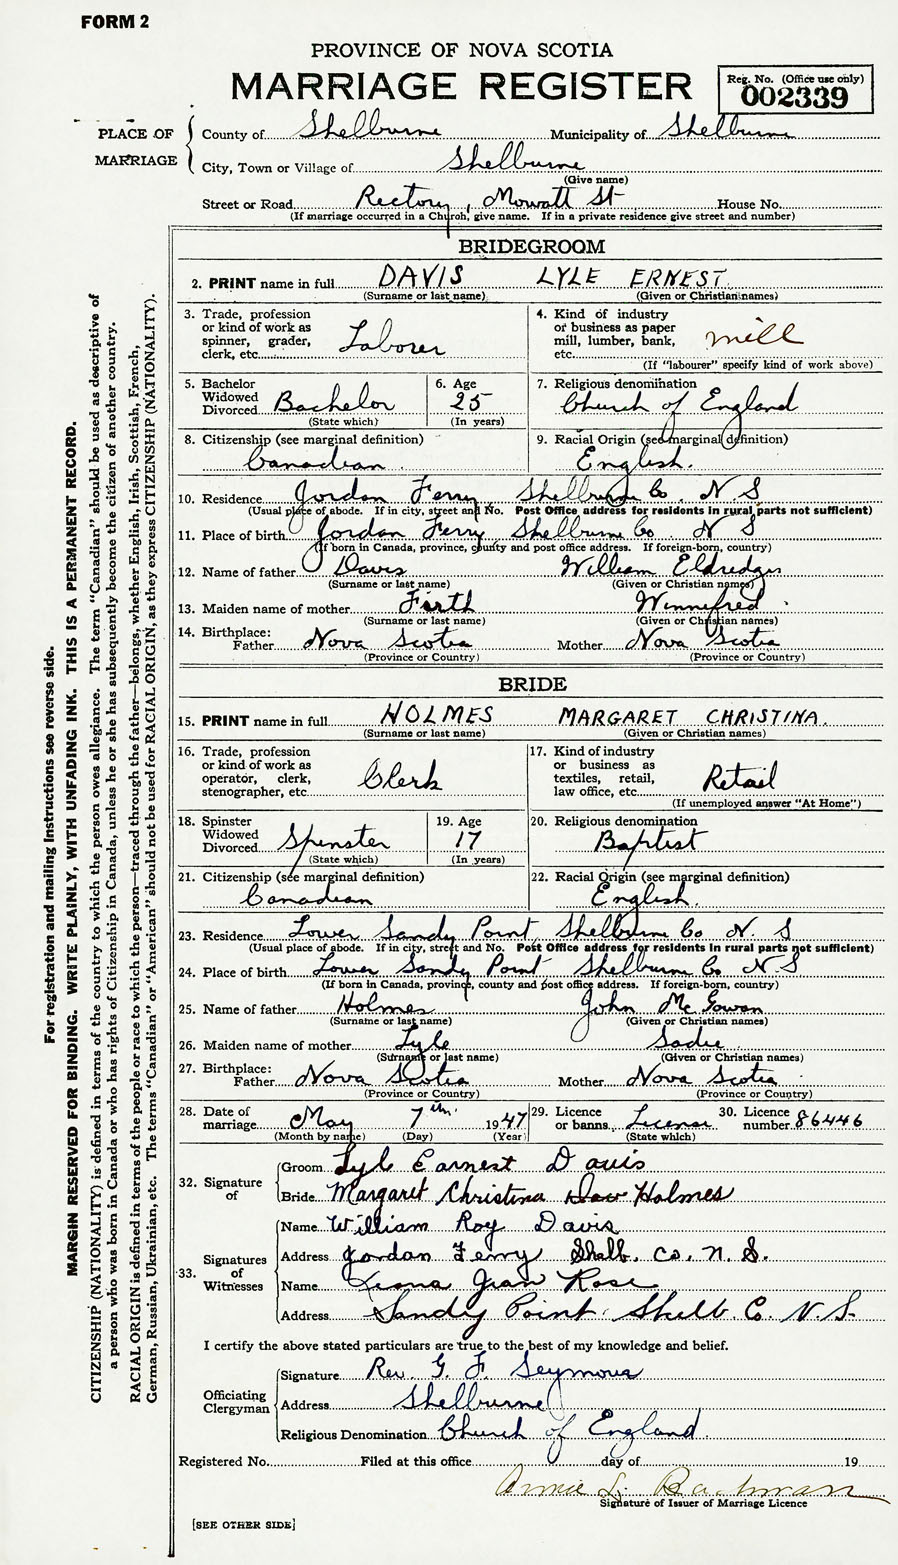 FORM 2
PROVINCE OF NOVA SCOTIA
MARRIAGE REGISTER
Reg. No. (Office use only)
002339
PLACE OF MARRIAGE
County of Shelburne Municipality of Shelburne
City, Town or Village of Shelburne
(Give name)
Street or Road Rectory, Mowatt St House No.
(If marriage occurred in a Church, give name. If in a private residence give street and number)
BRIDEGROOM
2. PRINT name in full DAVIS LYLE ERNEST
(Surname or last name) (Given or Christian names)
3. Trade, profession or kind of work as spinner, grader, clerk, etc. Laborer
4. Kind of industry or business as paper mill, lumber, bank, etc. mill
(If "labourer" specify kind of work above)
5. Bachelor Widowed Divorced Bachelor
(State which)
6. Age 25
(In years)
7. Religious denomination
Church of England
8. Citizenship (see marginal definition)
Canadian
9. Racial Origin (see marginal definition)
English.
10. Residence Jordan Ferry, Shelburne Co. N S
(Usual place of abode. If in city, street and No. Post Office address for residents in rural parts not sufficient)
11. Place of birth Jordan Ferry Shelburne Co. N S
(If born in Canada, province, county and post office address. If foreign-born, country)
12. Name of father Davis William
(Surname or last name) (Given or Christian names)
13. Maiden name of mother Firth Winnefred
(Surname or last name) (Given or Christian names)
14. Birthplace:
Father Nova Scotia Mother Nova Scotia
(Province or Country) (Province or Country)
BRIDE
15. PRINT name in full HOLMES MARGARET CHRISTINA.
(Surname or last name) (Given or Christian names)
16. Trade, profession or kind of work as operator, clerk, stenographer, etc. Clerk
17. Kind of industry or business as textiles, retail, law office, etc. Retail
(If unemployed answer "At Home")
18. Spinster Widowed Divorced Spinster
(State which)
19. Age 17
(In years)
20. Religious denomination
Baptist
21. Citizenship (see marginal definition)
Canadian
22. Racial Origin (see marginal definition)
English.
23. Residence Lower Sandy Point, Shelburne Co N. S
(Usual place of abode. If in city, street and No. Post Office address for residents in rural parts not sufficient)
24. Place of birth Lower Sandy Point Shelburne Co N S
(If born in Canada, province, county and post office address. If foreign-born, country)
25. Name of father Holmes John McGowan
(Surname or last name) (Given or Christian names)
26. Maiden name of mother Lyle Sadie
(Surname or last name) (Given or Christian names)
27. Birthplace:
Father Nova Scotia Mother Nova Scotia
(Province or Country) (Province or Country)
28. Date of marriage May 7th 1947
(Month by name) (Day) (Year)
29. Licence or banns License
(State which)
30. Licence number 86446
32. Signature of
Groom Lyle Earnest Davis
Bride Margaret Christina Holmes
33. Signatures of Witnesses
Name William Roy Davis
Address Jordan Ferry Shelb. Co. N. S.
Name Jean Rose
Address Sandy Point. Shelb. Co. N. S.
I certify the above stated particulars are true to the best of my knowledge and belief.
Officiating Clergyman
Signature Rev. G. F. Seymour
Address Shelburne
Religious Denomination Church of England.
Registered No. Filed at this office day of 19
Annie L.
Signature of Issuer of Marriage Licence
[SEE OTHER SIDE]
For registration and mailing instructions see reverse side.
MARGIN RESERVED FOR BINDING. WRITE PLAINLY, WITH UNFADING INK. THIS IS A PERMANENT RECORD.
CITIZENSHIP (NATIONALITY) is defined in terms of the country to which the person owes allegiance. The term "Canadian" should be used as descriptive of
a person who was born in Canada or who has rights of Citizenship in Canada, unless he or she has subsequently become the citizen of another country.
RACIAL ORIGIN is defined in terms of the people or race to which the person—traced through the father—belongs, whether English, Irish, Scottish, French,
German, Russian, Ukrainian, etc. The terms "Canadian" or "American" should not be used for RACIAL ORIGIN, as they express CITIZENSHIP (NATIONALITY).